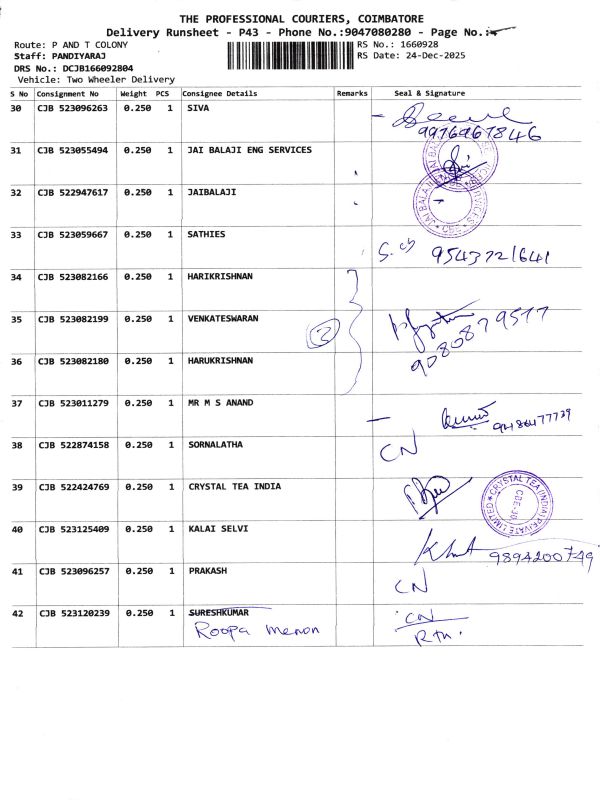 THE PROFESSIONAL COURIERS, COIMBATORE
Delivery Runsheet - P43 - Phone No.:9047080280 - Page No.:
Route: P AND T COLONY
RS No.: 1660928
Staff: PANDIYARAJ
RS Date: 24-Dec-2025
DRS No.: DCJB166092804
Vehicle: Two Wheeler Delivery
S No Consignment No Weight PCS Consignee Details Remarks Seal & Signature
30 CJB 523096263 0.250 1 SIVA
9976967846
31 CJB 523055494 0.250 1 JAI BALAJI ENG SERVICES
32 CJB 522947617 0.250 1 JAIBALAJI
33 CJB 523059667 0.250 1 SATHIES
9543721641
34 CJB 523082166 0.250 1 HARIKRISHNAN
35 CJB 523082199 0.250 1 VENKATESWARAN
9080879577
36 CJB 523082180 0.250 1 HARUKRISHNAN
37 CJB 523011279 0.250 1 MR M S ANAND
38 CJB 522874158 0.250 1 SORNALATHA CN
39 CJB 522424769 0.250 1 CRYSTAL TEA INDIA
CRYSTAL TEA (INDIA) PRIVATE LIMITED
40 CJB 523125409 0.250 1 KALAI SELVI
9894200749
41 CJB 523096257 0.250 1 PRAKASH CN
42 CJB 523120239 0.250 1 SURESHKUMAR CN
Roopa menon Rtn.